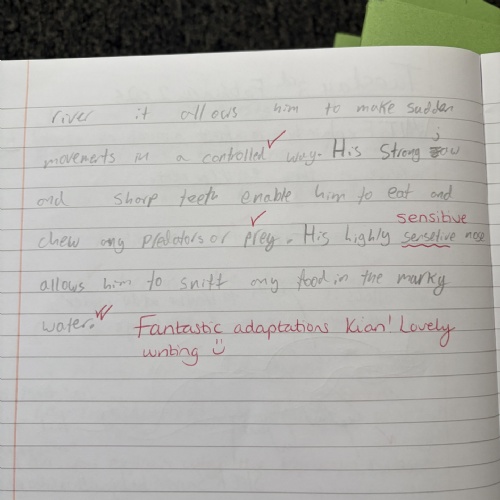 river it allows him to make sudden
movements in a controlled way. His strong jow
and sharp teeth enable him to eat and
chew any predators or prey. His highly sensetive nose
sensitive
allows him to sniff any food in the marky
water.
Fantastic adaptations Kian! Lovely
writing